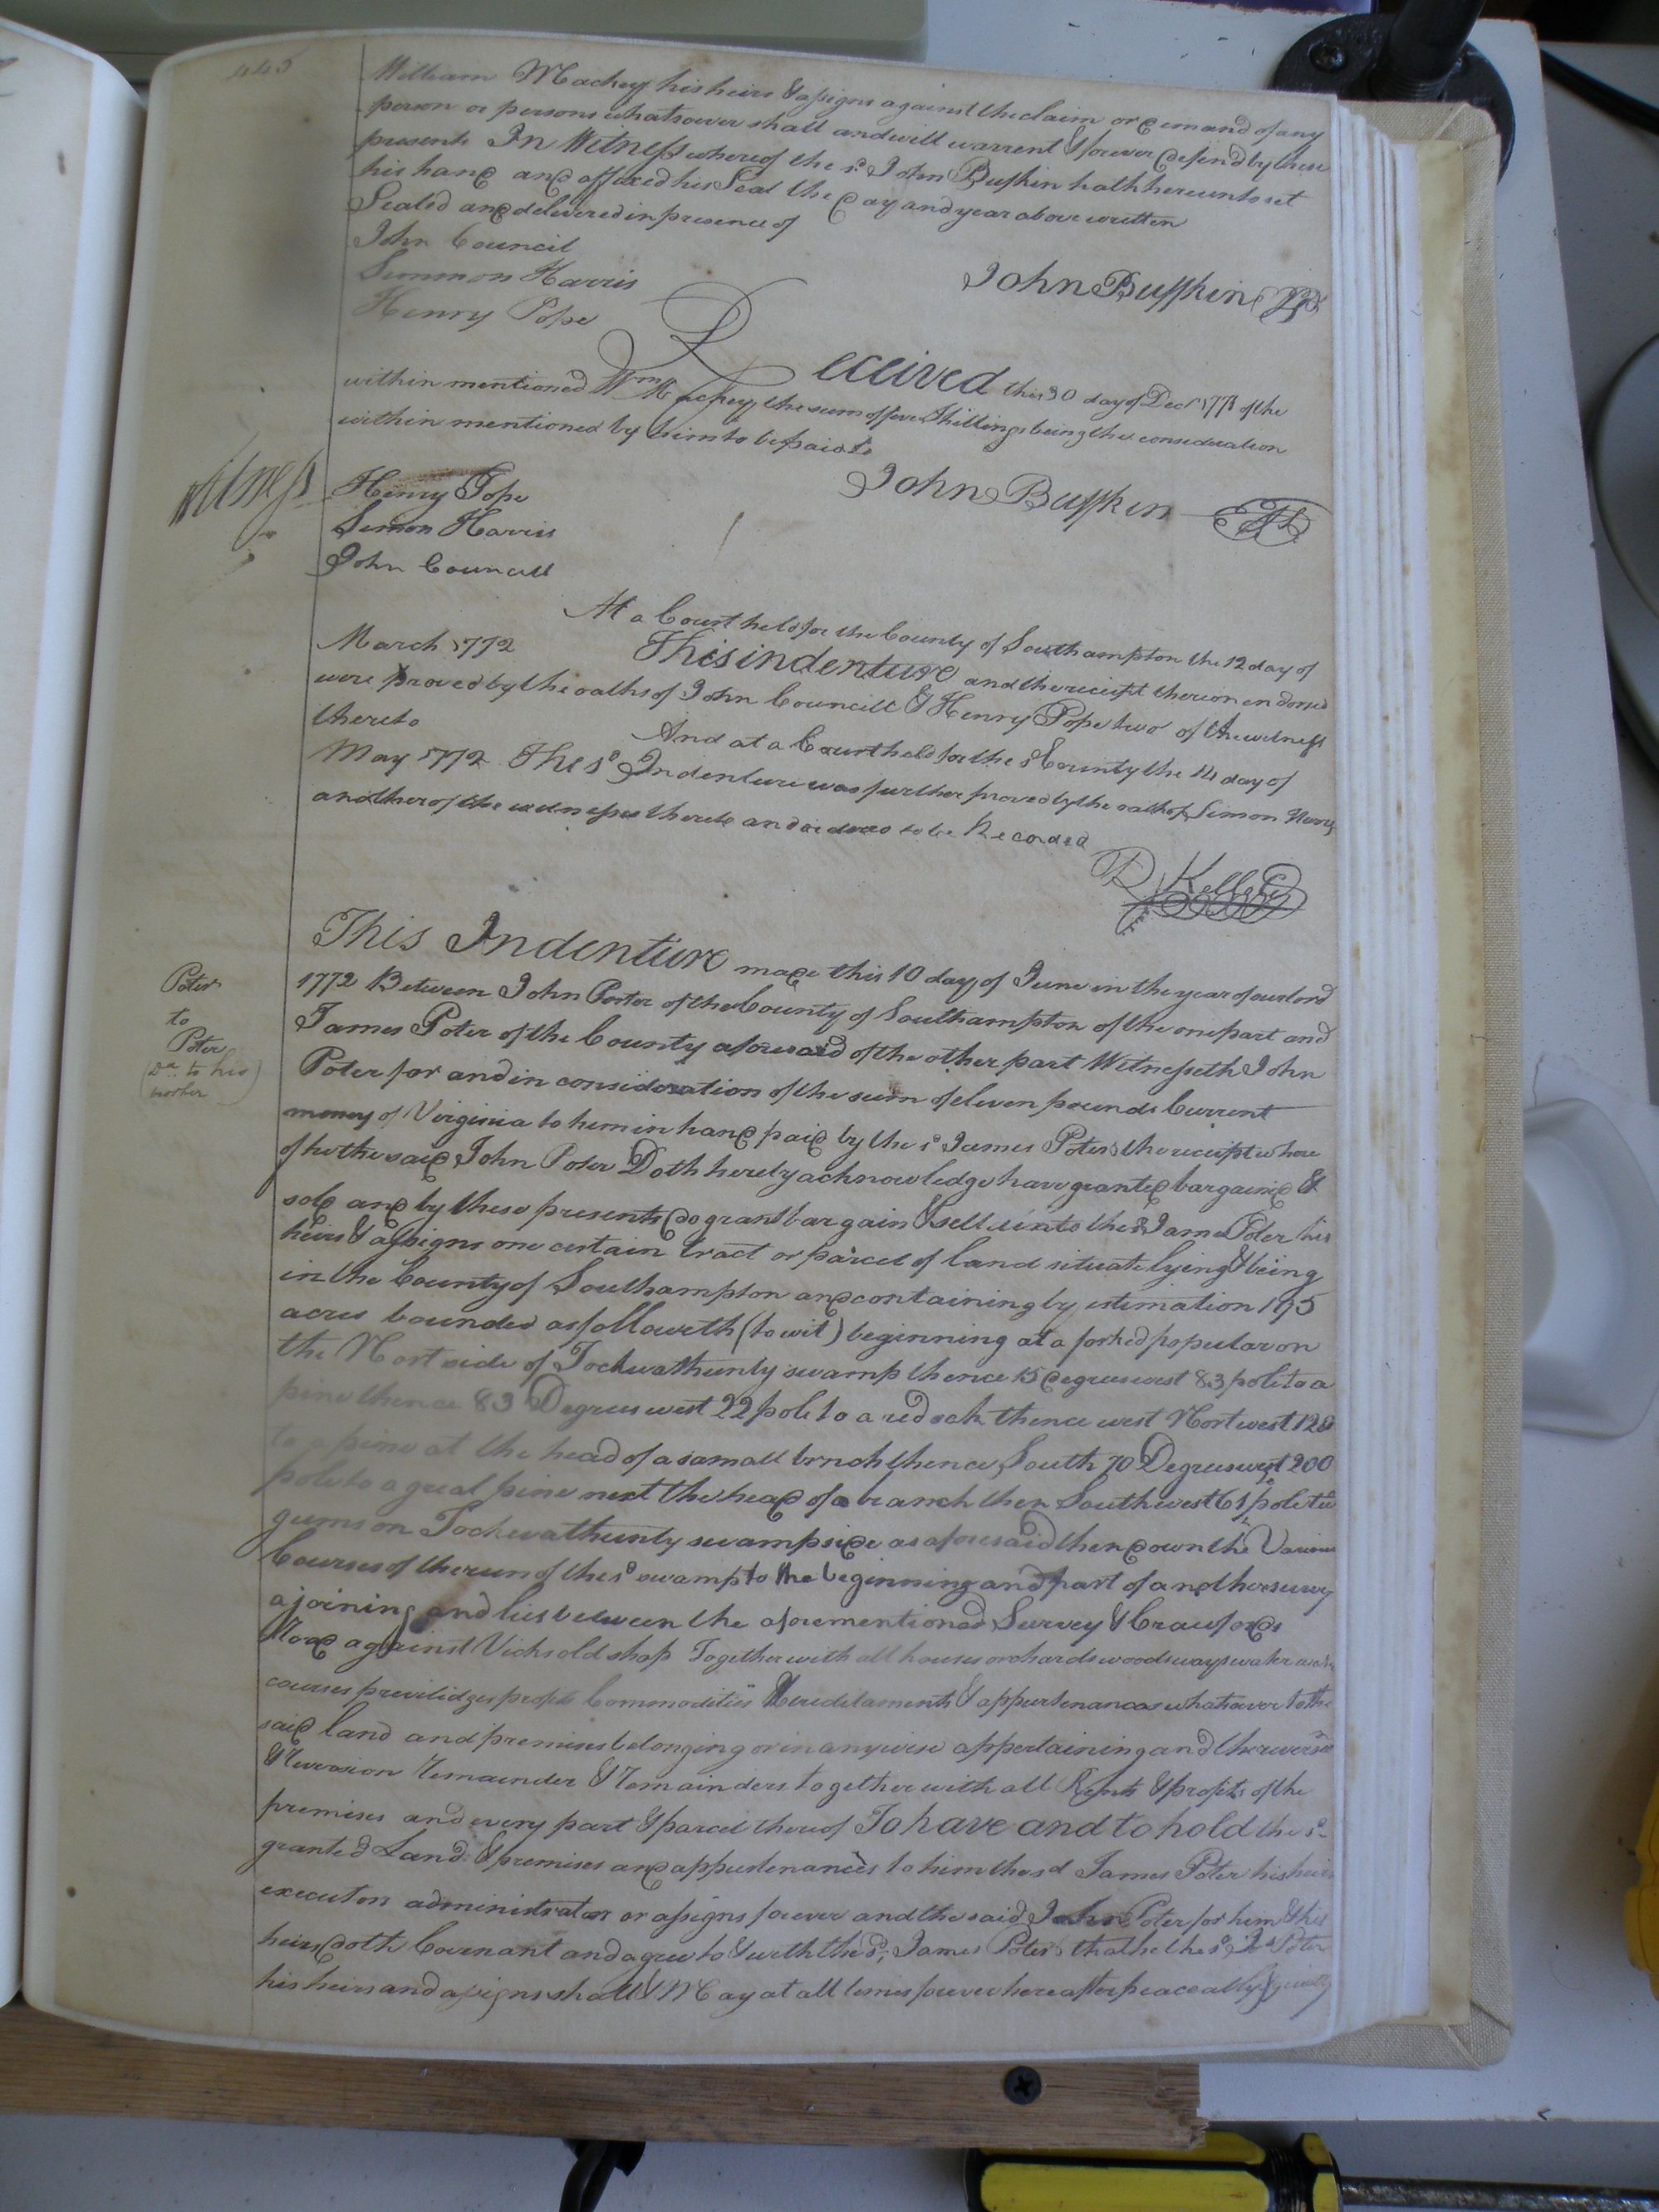 443
William Mackey his heirs & assigns against the claim or demand of any
person or persons whatsoever shall and will warrent & forever defend by these
presents In Witness whereof the sd John Buffkin hath hereunto set
his hand and affixed his Seal the day and year above written
Sealed and delivered in presence of
John Council
Simmon Harris
Henry Pope
John Buffkin
Received this 30 day of Decr 1771 of the
within mentioned Wm Mackey the sum of five Shillings being the consideration
within mentioned by him to be paid to
John Buffkin
Witness
Henry Pope
Simon Harris
John Councill
At a Court held for the County of Southampton the 12 day of
March 1772 This indenture and the receipt thereon endorsed
were proved by the oaths of John Councill & Henry Pope two of the witness
thereto And at a Court held for the sd County the 14 day of
May 1772 The sd Indenture was further proved by the oath of Simon
another of the witnesses thereto and ordered to be Recorded
R Kello
This Indenture made this 10 day of June in the year of our lord
1772 Between John Porter of the County of Southampton of the one part and
James Poter of the County aforesaid of the other part Witnesseth John
Poter for and in consideration of the sum of eleven pounds Current
money of Virginia to him in hand paid by the sd James Poter the receipt where
of he the said John Poter Doth hereby acknowledge have granted bargained &
sold and by these presents do grant bargain & sell unto the sd James Poter his
heirs & assigns one certain tract or parcel of land situate lying & being
in the County of Southampton and containing by estimation 195
acres bounded as followeth (to wit) beginning at a forked popular on
the Nort side of Tockwathunty swamp thence 15 degrees west 83 pole to a
pine thence 83 Degrees west 22 pole to a red oak thence west Nort west 128
to a pine at the head of a samall brnch thence South 70 Degrees west 200
pole to a great pine next the head of a branch then South west 61 pole to
gums on Tockwathunty swamp side as aforesaid then down the Various
Courses of the run of the sd swamp to the beginning and part of another survey
ajoining and lies between the aforementioned Survey & Crawfords
Road against Vicks old shop Together with all houses orchards woods ways water
courses previlidges profits Commodities Hereditaments & appurtenances whatsoever to the
said land and premises belonging or in anywise appertaining and the
Reversion Remainder & Remainders together with all Rents & profits of the
premises and every part & parcel thereof To have and to hold the sd
granted Land & premises and appurtenances to him the sd James Poter his heirs
executors administrators or assigns forever and the said John Poter for him & his
heirs doth Covenant and agree to & with the sd James Poter that he the sd Jno Poter
his heirs and assigns shall & May at all times forever hereafter peaceably & quietly
Poter
to
Poter